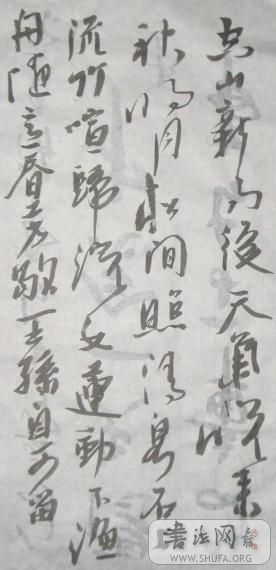 空山新雨後天氣晚来
秋明月松間照清泉石
流竹喧歸浣女蓮動下漁
舟随意春芳歇王孫自可留
書法网
WWW.SHUFA.ORG